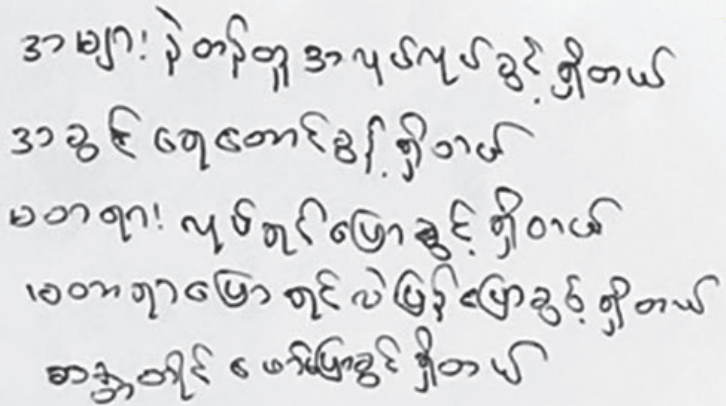 အများ နဲ့တန်တူ အလုပ်လုပ်ခွင့်ရှိတယ်
အခွင့်ရေတောင်းခွန့်ရှိတယ်
မတရား လုပ်ရင်ပြောခွင့်ရှိတယ်
မတရာပြောရင်လဲပြန်ပြောခွင့်ရှိတယ်
ဖော်ပြောခွင်ရှိတယ်